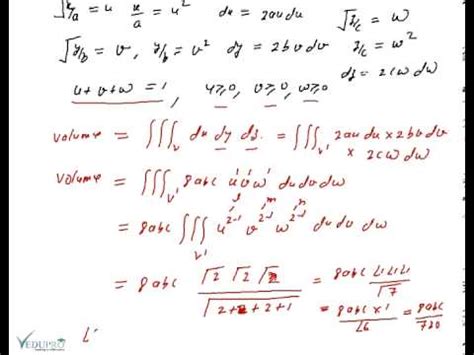 √x/a = u  x/a = u²  dx = 2au du  √z/c = w
√y/b = v, y/b = v²  dy = 2bv dv  z/c = w²
dz = 2cw dw
u+v+w = 1,  u≥0, v≥0, w≥0
volume = ∭_V dx dy dz = ∭_V' 2au du × 2bv dv
× 2cw dw
volume = ∭_V' 8abc u'v'w' du dv dw
= 8abc ∭_V' u²⁻¹ v²⁻¹ w²⁻¹ du dv dw
= 8abc Γ2 Γ2 Γ2 / Γ2+2+2+1 = 8abc ∟1 ∟1 ∟1 / Γ7
= 8abc × 1 / ∟6 = 8abc / 720
VEDUPRO